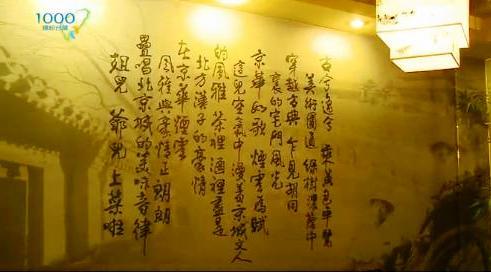 1000
古今通今 乘黃包車
美術園道 綠樹濃蔭中
穿越古典 乍見胡同
裏的宅門風光
京華如歌 煙雲為賦
這兒空氣中漫著京城文人
的風雅 茶裡酒裡盡是
北方漢子的豪情
在京華煙雲
風雅與豪情正朗朗
疊唱北京城的美味音律
姐兒 爺兒上菜啦